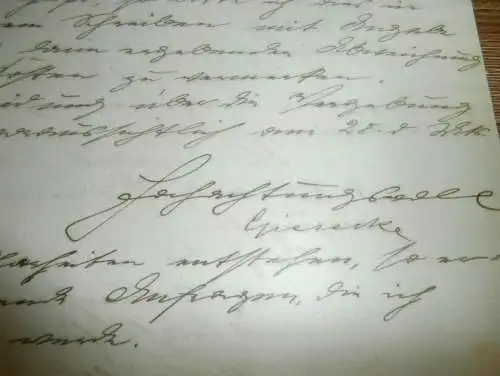 ich dies in
Schreiben mit Angabe
dann ergebenden Abweichung
Kosten zu vermerken.
über die Vergebung
voraussichtlich am 28. d. Mts.
Hochachtungsvoll
Giesecke
entstehen, so er-
Anfragen, die ich
werde.